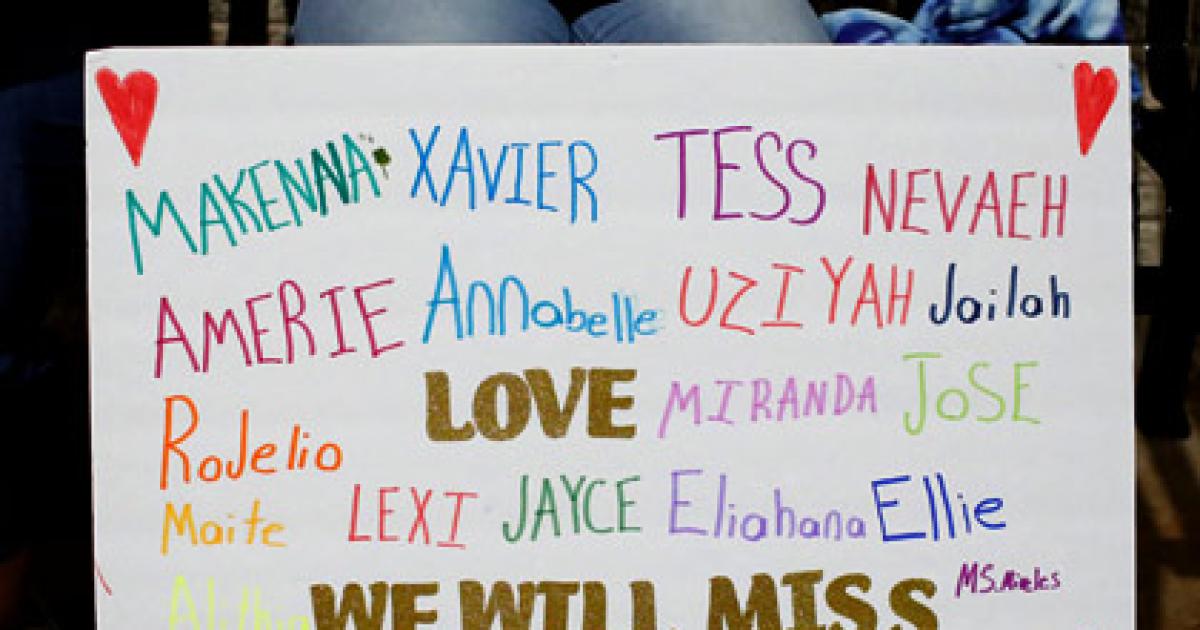 MAKENNA XAVIER TESS NEVAEH
AMERIE Annabelle UZIYAH Jailah
LOVE MIRANDA JoSE
RoJelio
Maite LEXI JAYCE Eliahana Ellie
Alithia WE WILL MISS MS.